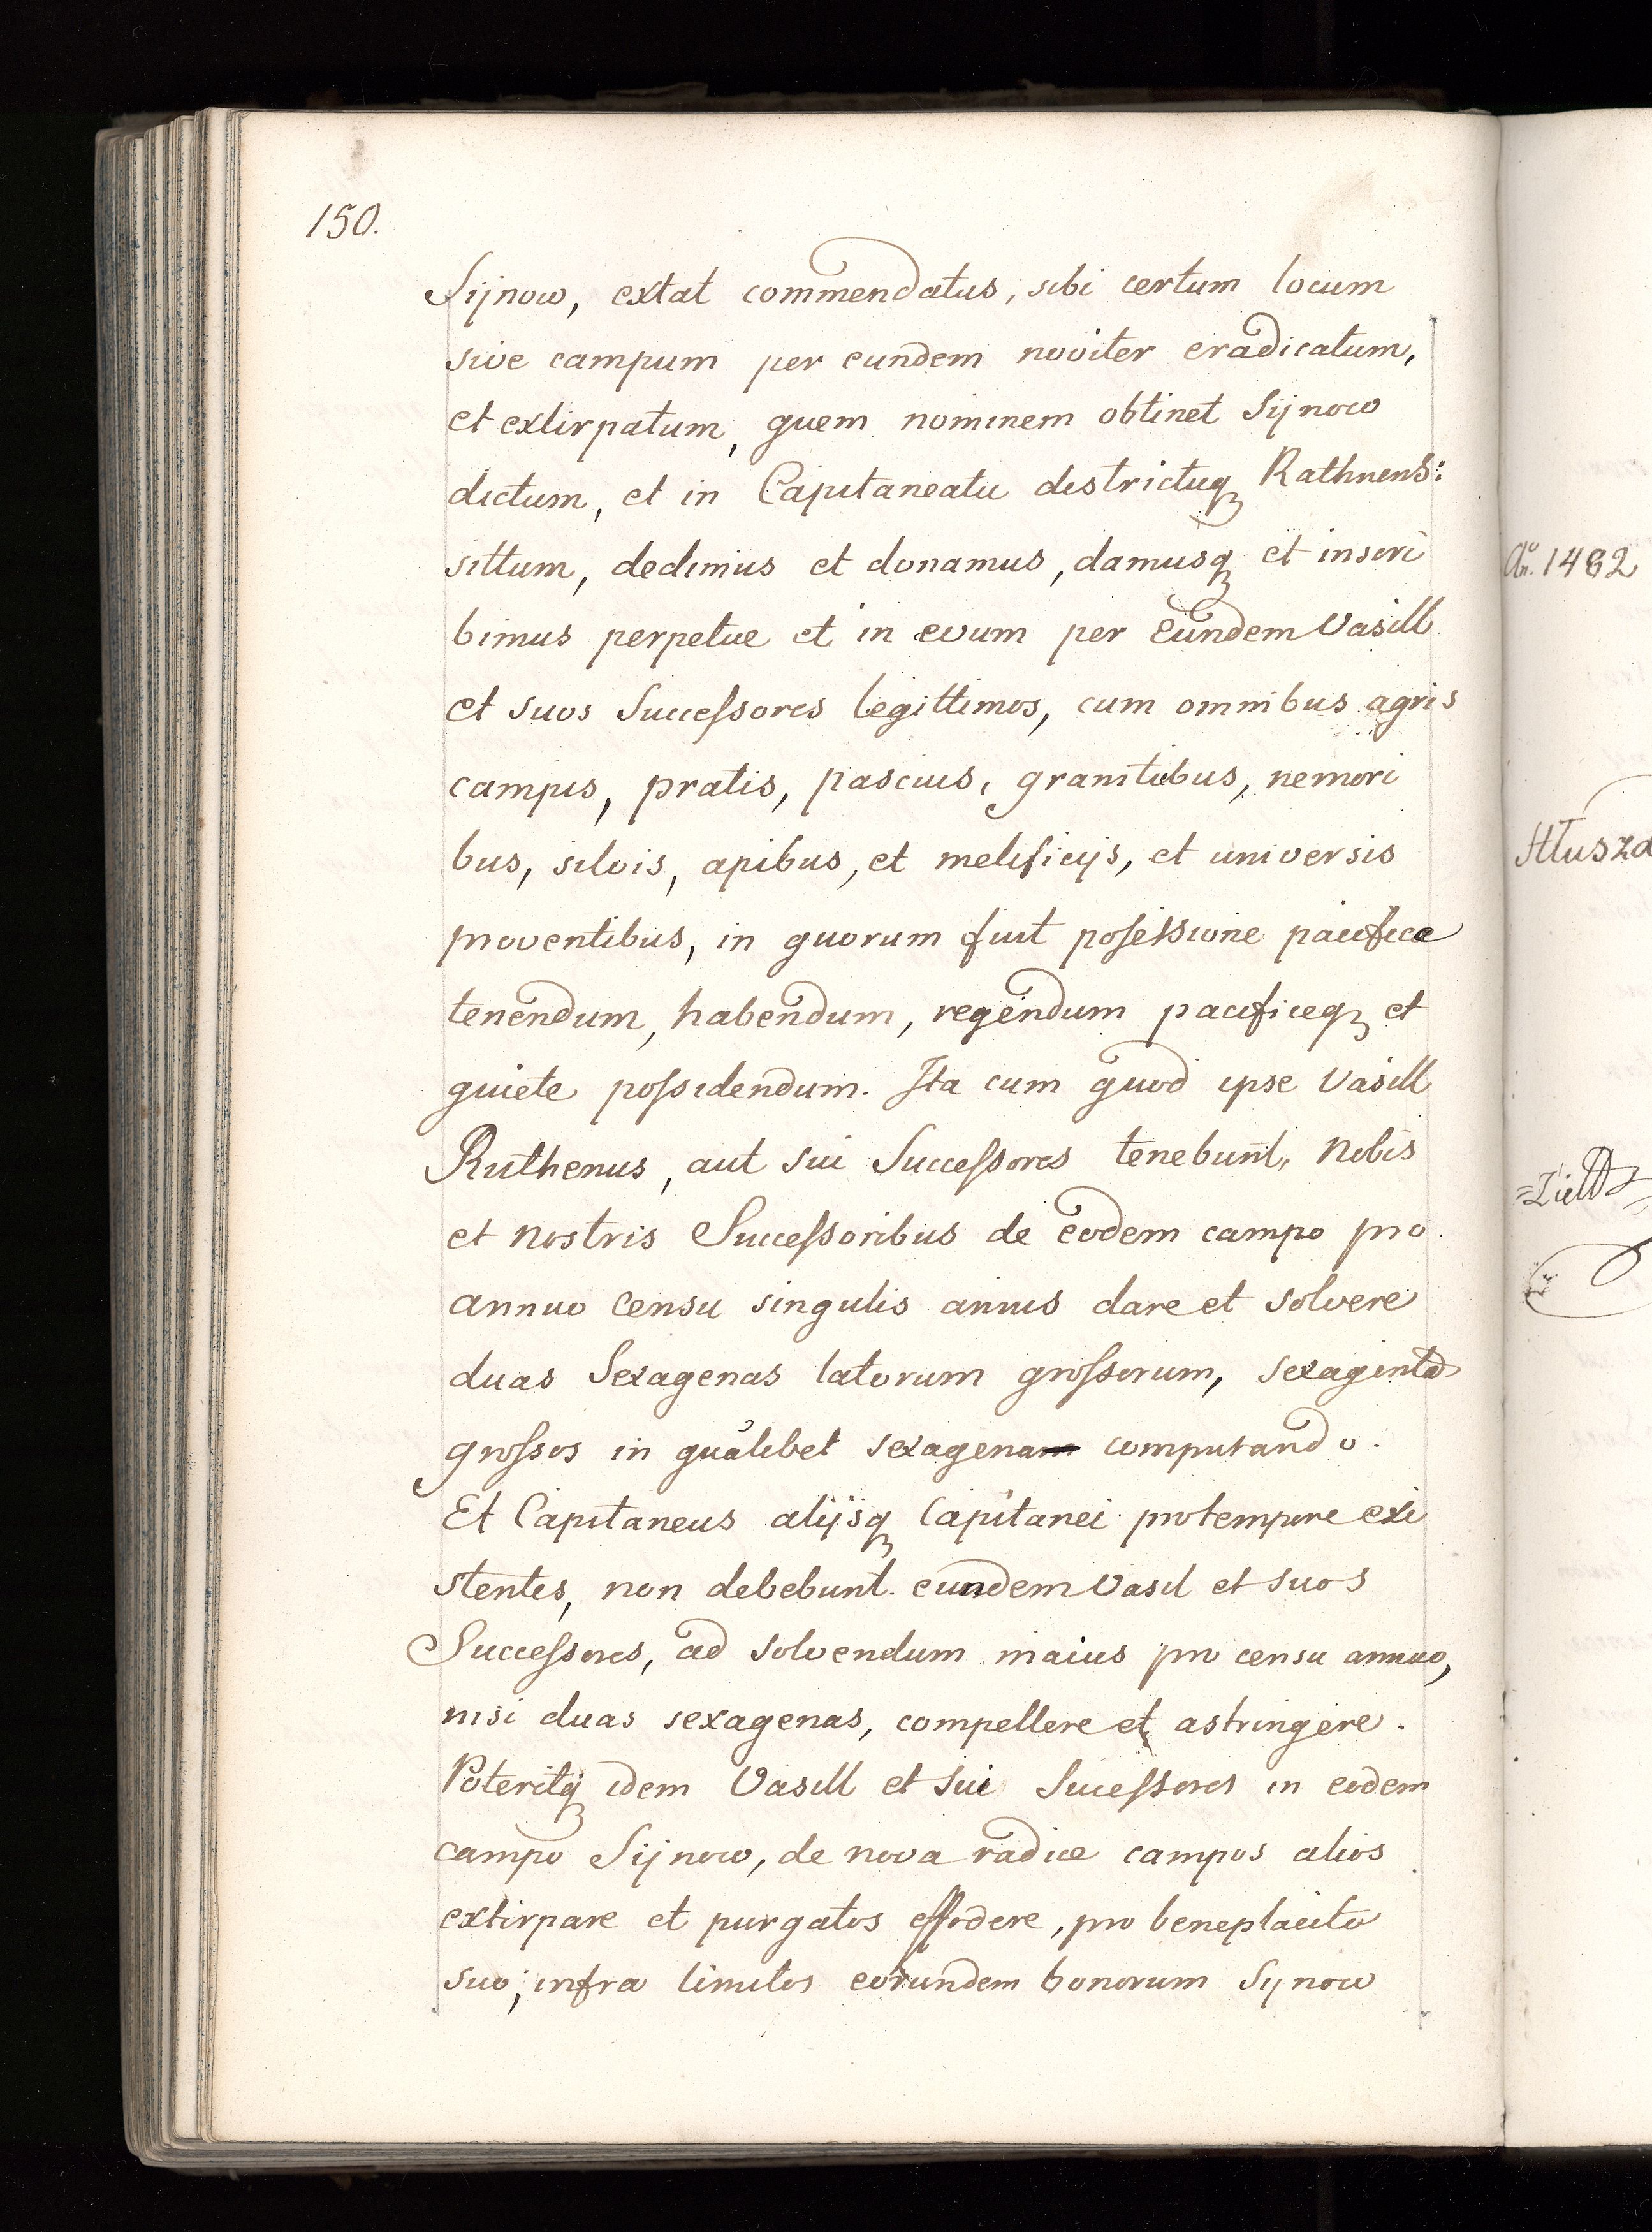 150.
Sijnow, extat commendatus, sibi certum locum
sive campum per eundem noviter eradicatum,
et extirpatum, quem nominem obtinet Sijnow
dictum, et in Capitaneatu districtuq3 Rathnens:
sittum, dedimus et donamus, damusq3 et inscri
bimus perpetue et in evum per Eundem Vasill
et suos Successores legittimos, cum omnibus agris
campis, pratis, pascuis, granitiebus, nemori
bus, silvis, apibus, et melificijs, et universis
proventibus, in quorum fuit posessione pacifica
tenendum, habendum, regendum pacificeq3 et
quiete possidendum. Ita cum quod ipse Vasill
Ruthenus, aut sui Successores tenebunt, Nobis
et Nostris Successoribus de eodem campo pro
annuo Censu singulis annis dare et solvere
duas Sexagenas latorum grossorum, sexaginta
grossos in qualibet sexagena computando.
Et Capitaneus alijsq3 Capitanei protempore exi
stentes, non debebunt eundem Vasil et suos
Successores, ad solvendum maius pro censu annuo,
nisi duas sexagenas, compellere et astringere.
Poteritq3 idem Vasill et sui Sucessores in eodem
campo Sijnow, de nova radice campos alios
extirpare et purgatos effodere, pro beneplacito
suo; infra limites eorundem bonorum Sijnow
Ao. 1482